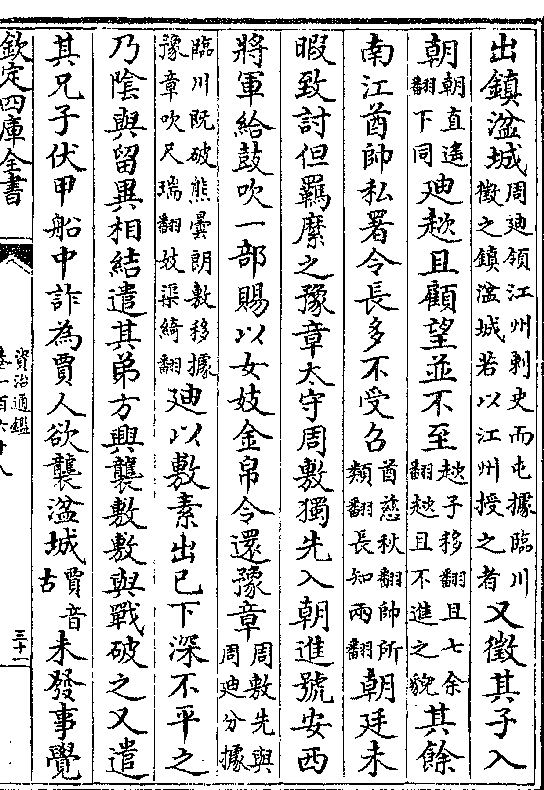 出鎮湓城周迪領江州刺史而屯據臨川徵之鎮湓城若以江州授之者又徵其子入
朝朝直遙翻下同迪趑且顧望並不至趑子移翻且七余翻趑且不進之貌其餘
南江酋帥私署令長多不受召酋慈秋翻帥所類翻長知兩翻朝廷未
暇致討但羈縻之豫章太守周敷獨先入朝進號安西
將軍給鼓吹一部賜以女妓金帛令還豫章周敷先與周迪分據
臨川既破熊曇朗敷移據豫章吹尺瑞翻妓渠綺翻迪以敷素出已下深不平之
乃陰與留異相結遣其弟方興襲敷敷與戰破之又遣
其兄子伏甲船中詐為賈人欲襲湓城賈音古未發事覺
欽定四庫全書
資治通鑑
卷一百六十八
三十一